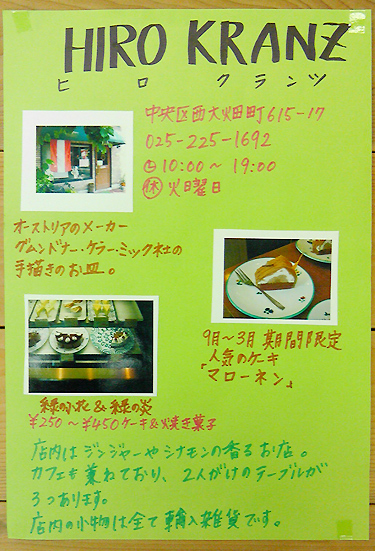 HIRO KRANZ
ヒロクランツ
中央区西大畑町615-17
025-225-1692
10:00～19:00
休 火曜日
オーストリアのメーカー
グムンドナー・ケラーミック社の
手描きのお皿。
9月～3月 期間限定
人気のケーキ
「マローネン」
緑の小花&緑の炎
¥250～¥450ケーキ&焼き菓子
店内はジンジャーやシナモンの香るお店。
カフェも兼ねており、2人がけのテーブルが
3つあります。
店内の小物は全て輸入雑貨です。